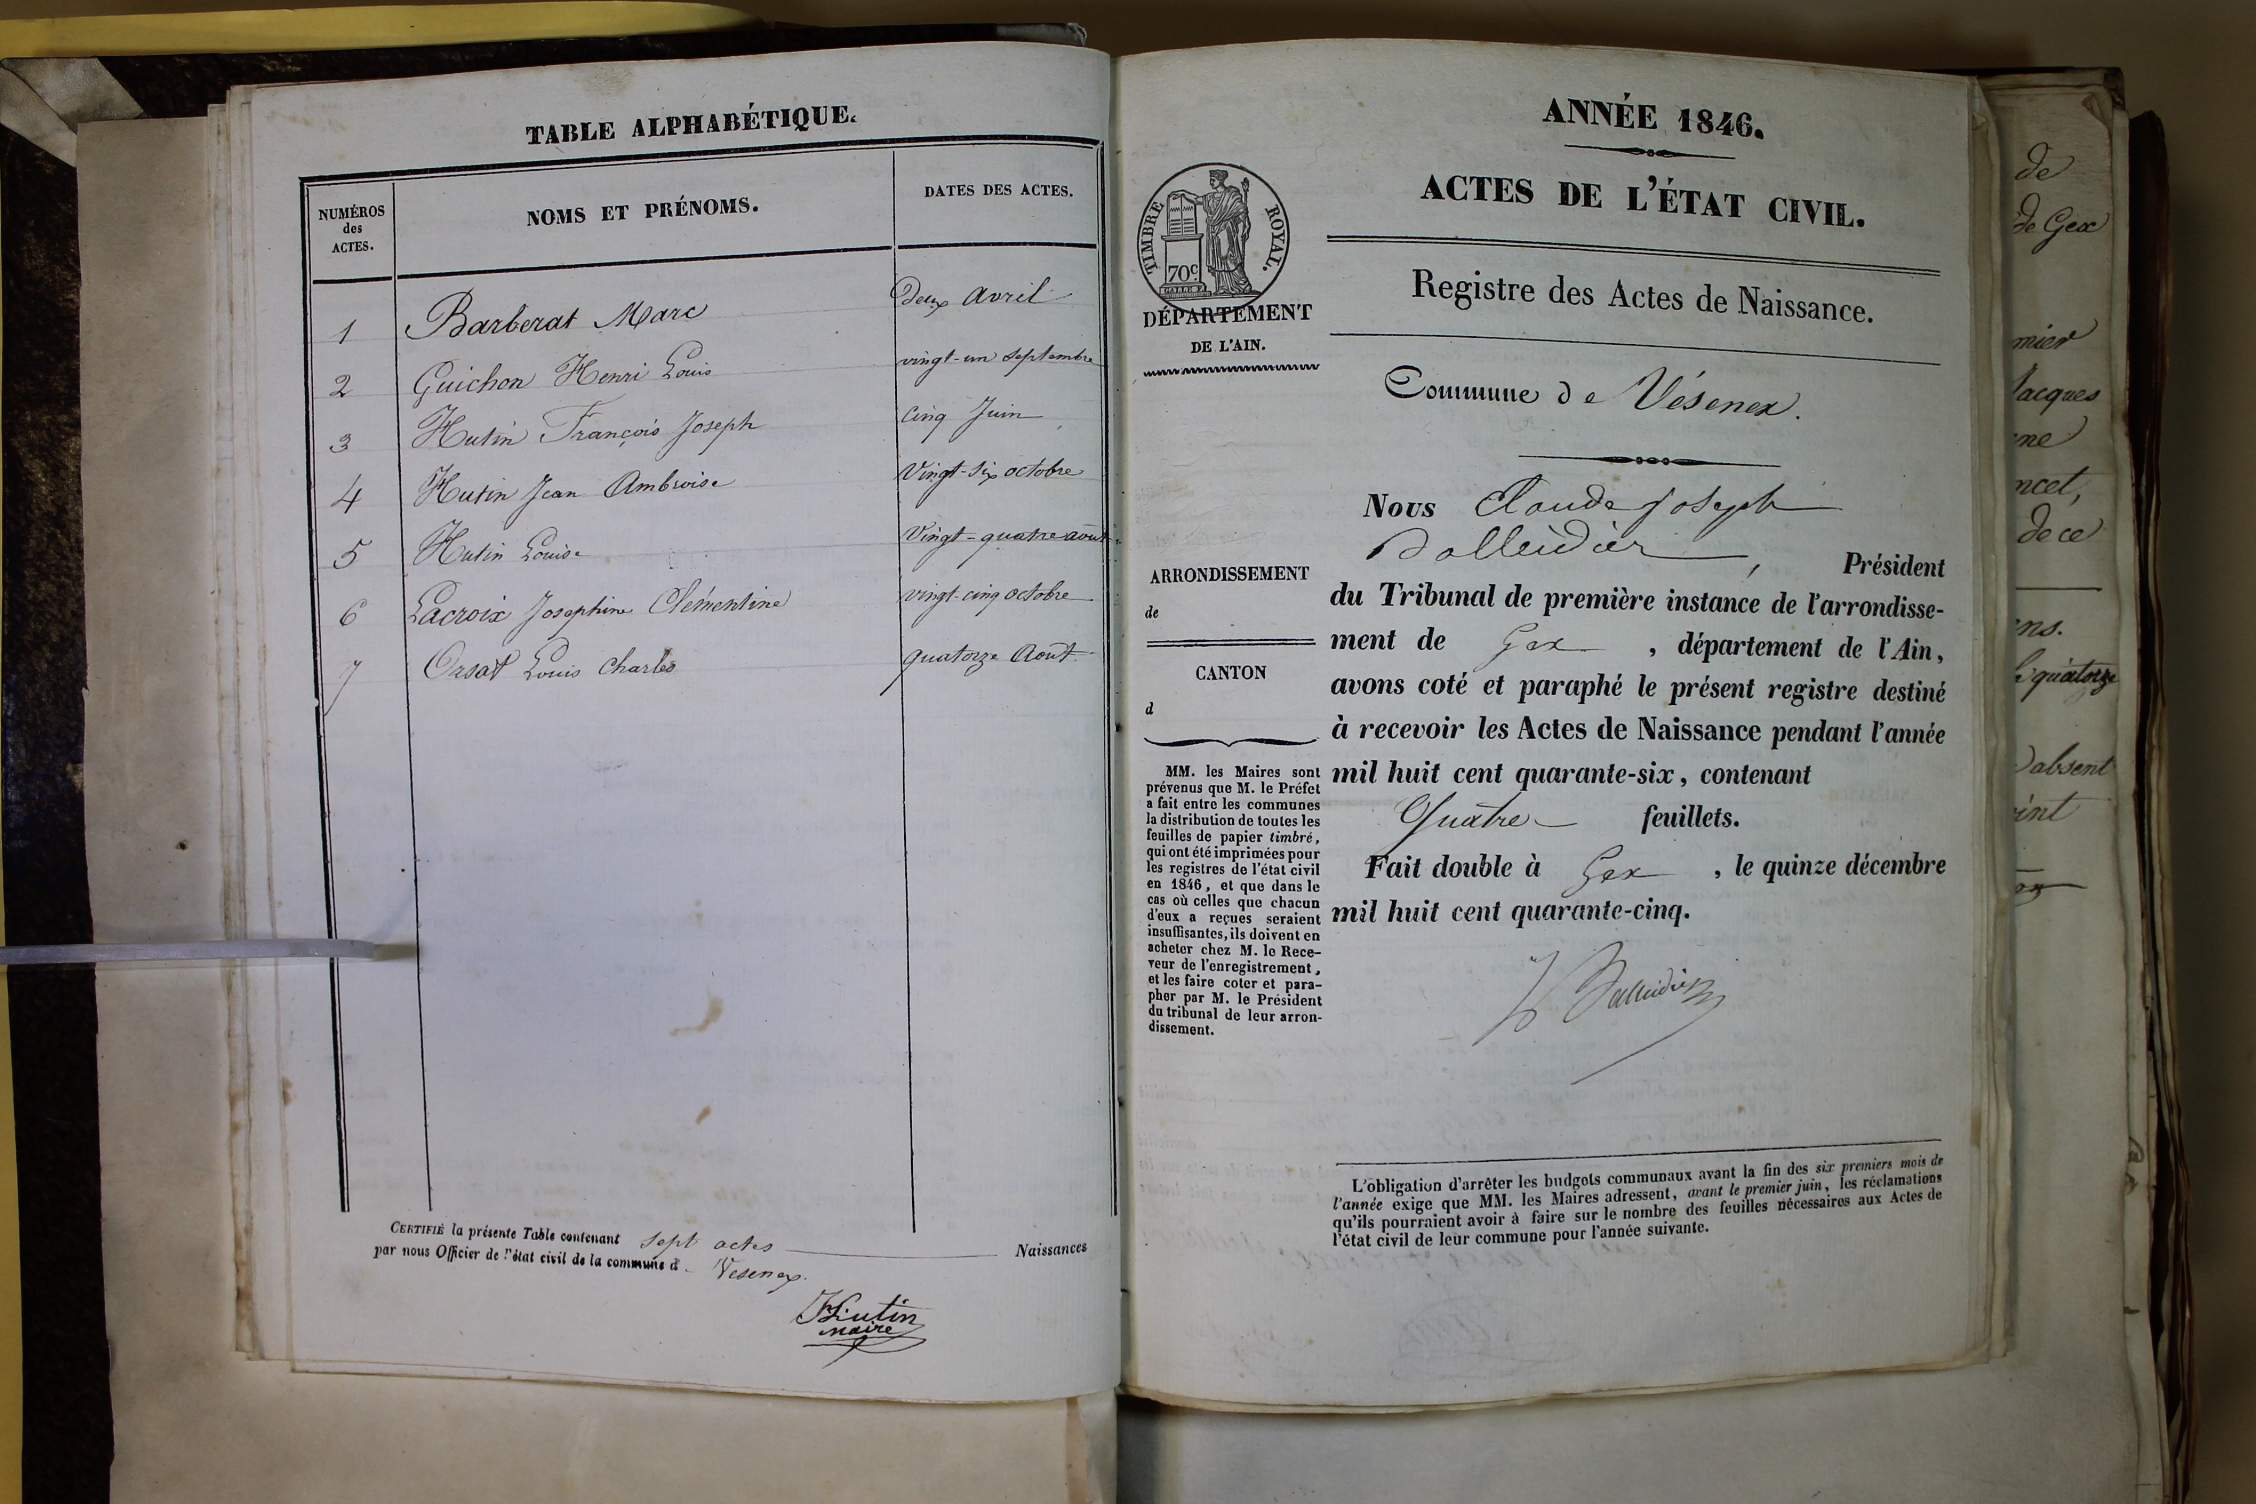 TABLE ALPHABÉTIQUE.
NUMÉROS
des
ACTES.
NOMS ET PRÉNOMS.
DATES DES ACTES.
1 Barberat Marc Deux avril
2 Guichon Henri Louis vingt-un septembre
3 Hutin François Joseph cinq Juin
4 Hutin Jean Ambroise Vingt-six octobre
5 Hutin Louise Vingt-quatre août
6 Lacroix Josephine Clémentine vingt-cinq octobre
7 Orsat Louis Charles quatorze Août
CERTIFIÉ la présente Table contenant sept actes Naissances
par nous Officier de l'état civil de la commune d Vesenex.
Hutin
maire
ANNÉE 1846.
ACTES DE L'ÉTAT CIVIL.
TIMBRE ROYAL.
70c
DÉPARTEMENT
DE L'AIN.
Registre des Actes de Naissance.
Commune de Vésenex.
ARRONDISSEMENT
de
CANTON
d
MM. les Maires sont
prévenus que M. le Préfet
a fait entre les communes
la distribution de toutes les
feuilles de papier timbré,
qui ont été imprimées pour
les registres de l'état civil
en 1846, et que dans le
cas où celles que chacun
d'eux a reçues seraient
insuffisantes, ils doivent en
acheter chez M. le Rece-
veur de l'enregistrement,
et les faire coter et para-
pher par M. le Président
du tribunal de leur arron-
dissement.
Nous Claude Joseph
Balleidier, Président
du Tribunal de première instance de l'arrondisse-
ment de Gex, département de l'Ain,
avons coté et paraphé le présent registre destiné
à recevoir les Actes de Naissance pendant l'année
mil huit cent quarante-six, contenant
Quatre feuillets.
Fait double à Gex, le quinze décembre
mil huit cent quarante-cinq.
Balleidier
L'obligation d'arrêter les budgets communaux avant la fin des six premiers mois de
l'année exige que MM. les Maires adressent, avant le premier juin, les réclamations
qu'ils pourraient avoir à faire sur le nombre des feuilles nécessaires aux Actes de
l'état civil de leur commune pour l'année suivante.
de
de Gex
mier
Jacques
ne
ncet,
de ce
ns.
quatorze
absent
int